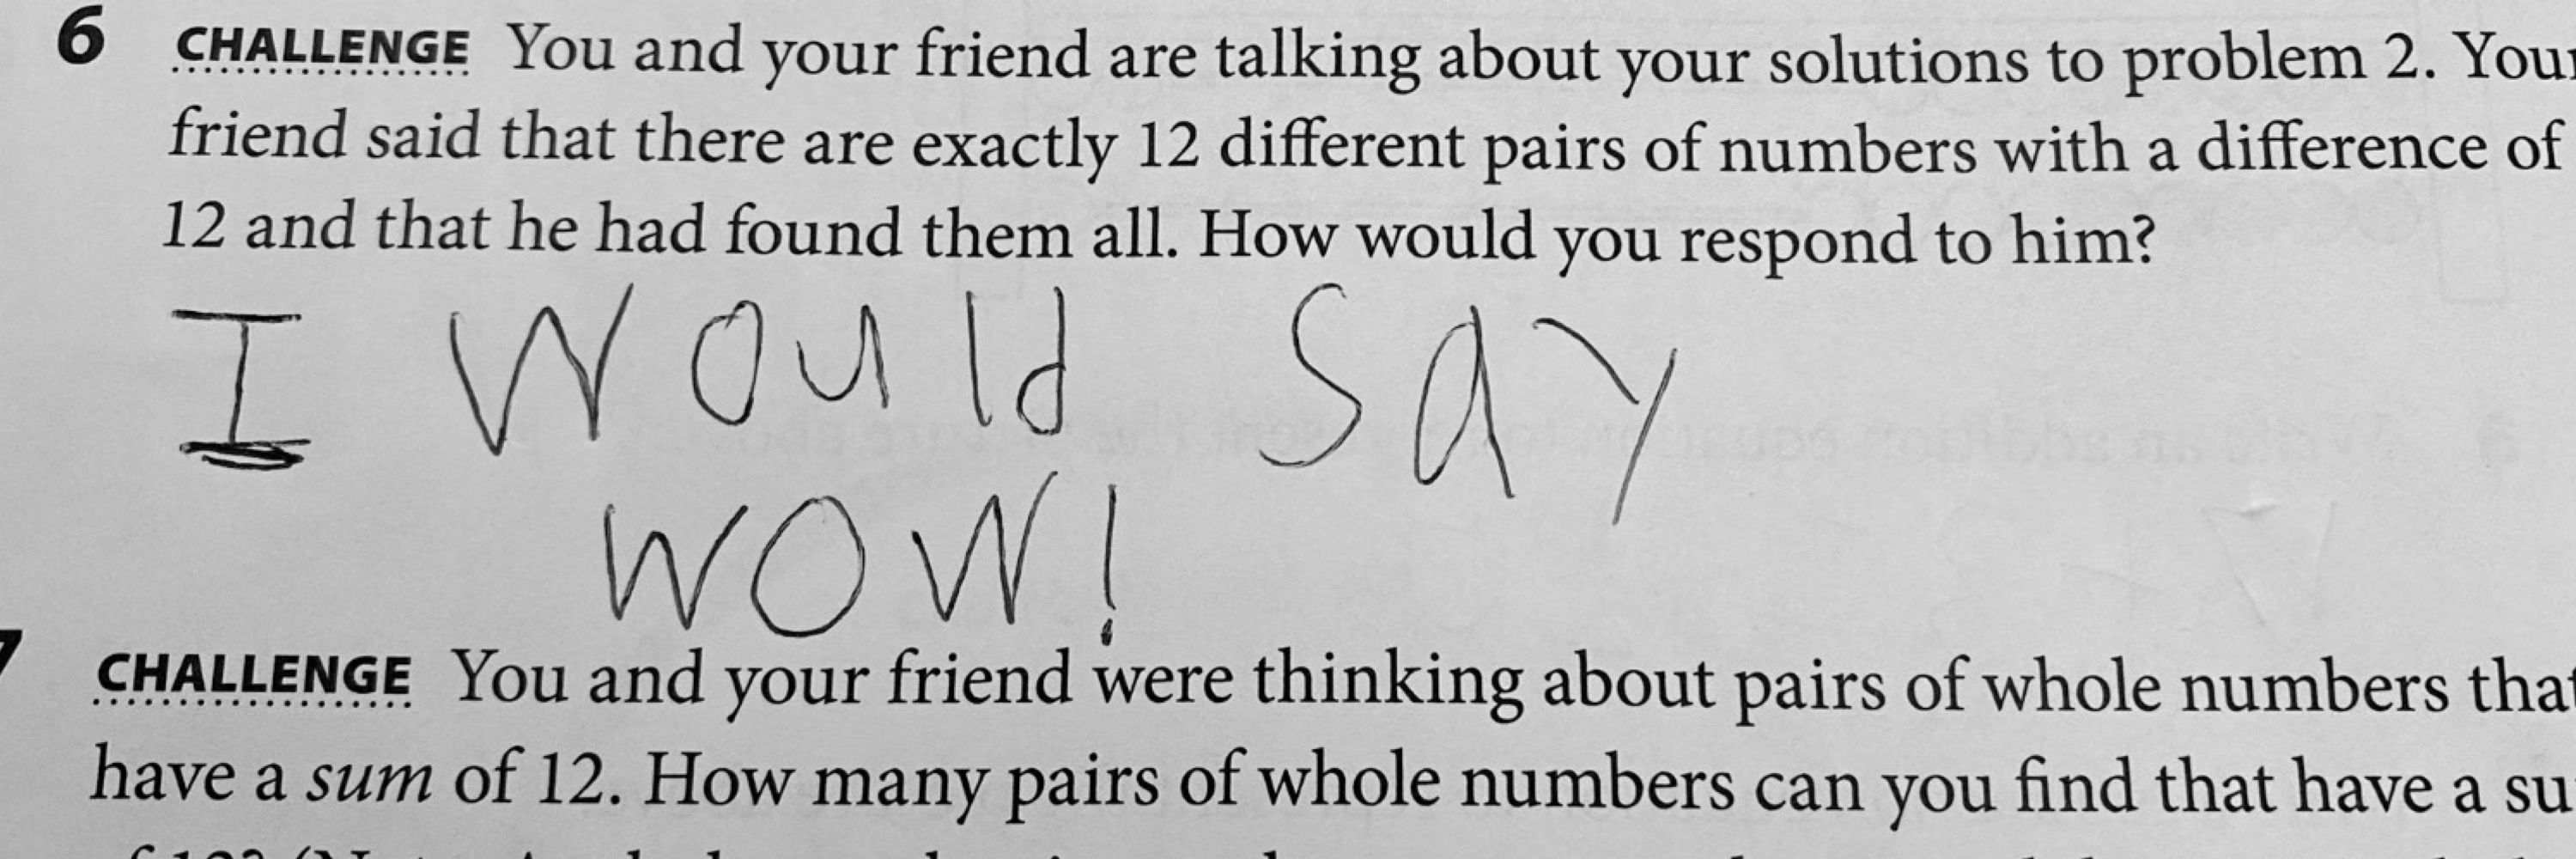 6 CHALLENGE You and your friend are talking about your solutions to problem 2. Your
friend said that there are exactly 12 different pairs of numbers with a difference of
12 and that he had found them all. How would you respond to him?
I Would Say
WOW!
7 CHALLENGE You and your friend were thinking about pairs of whole numbers that
have a sum of 12. How many pairs of whole numbers can you find that have a su